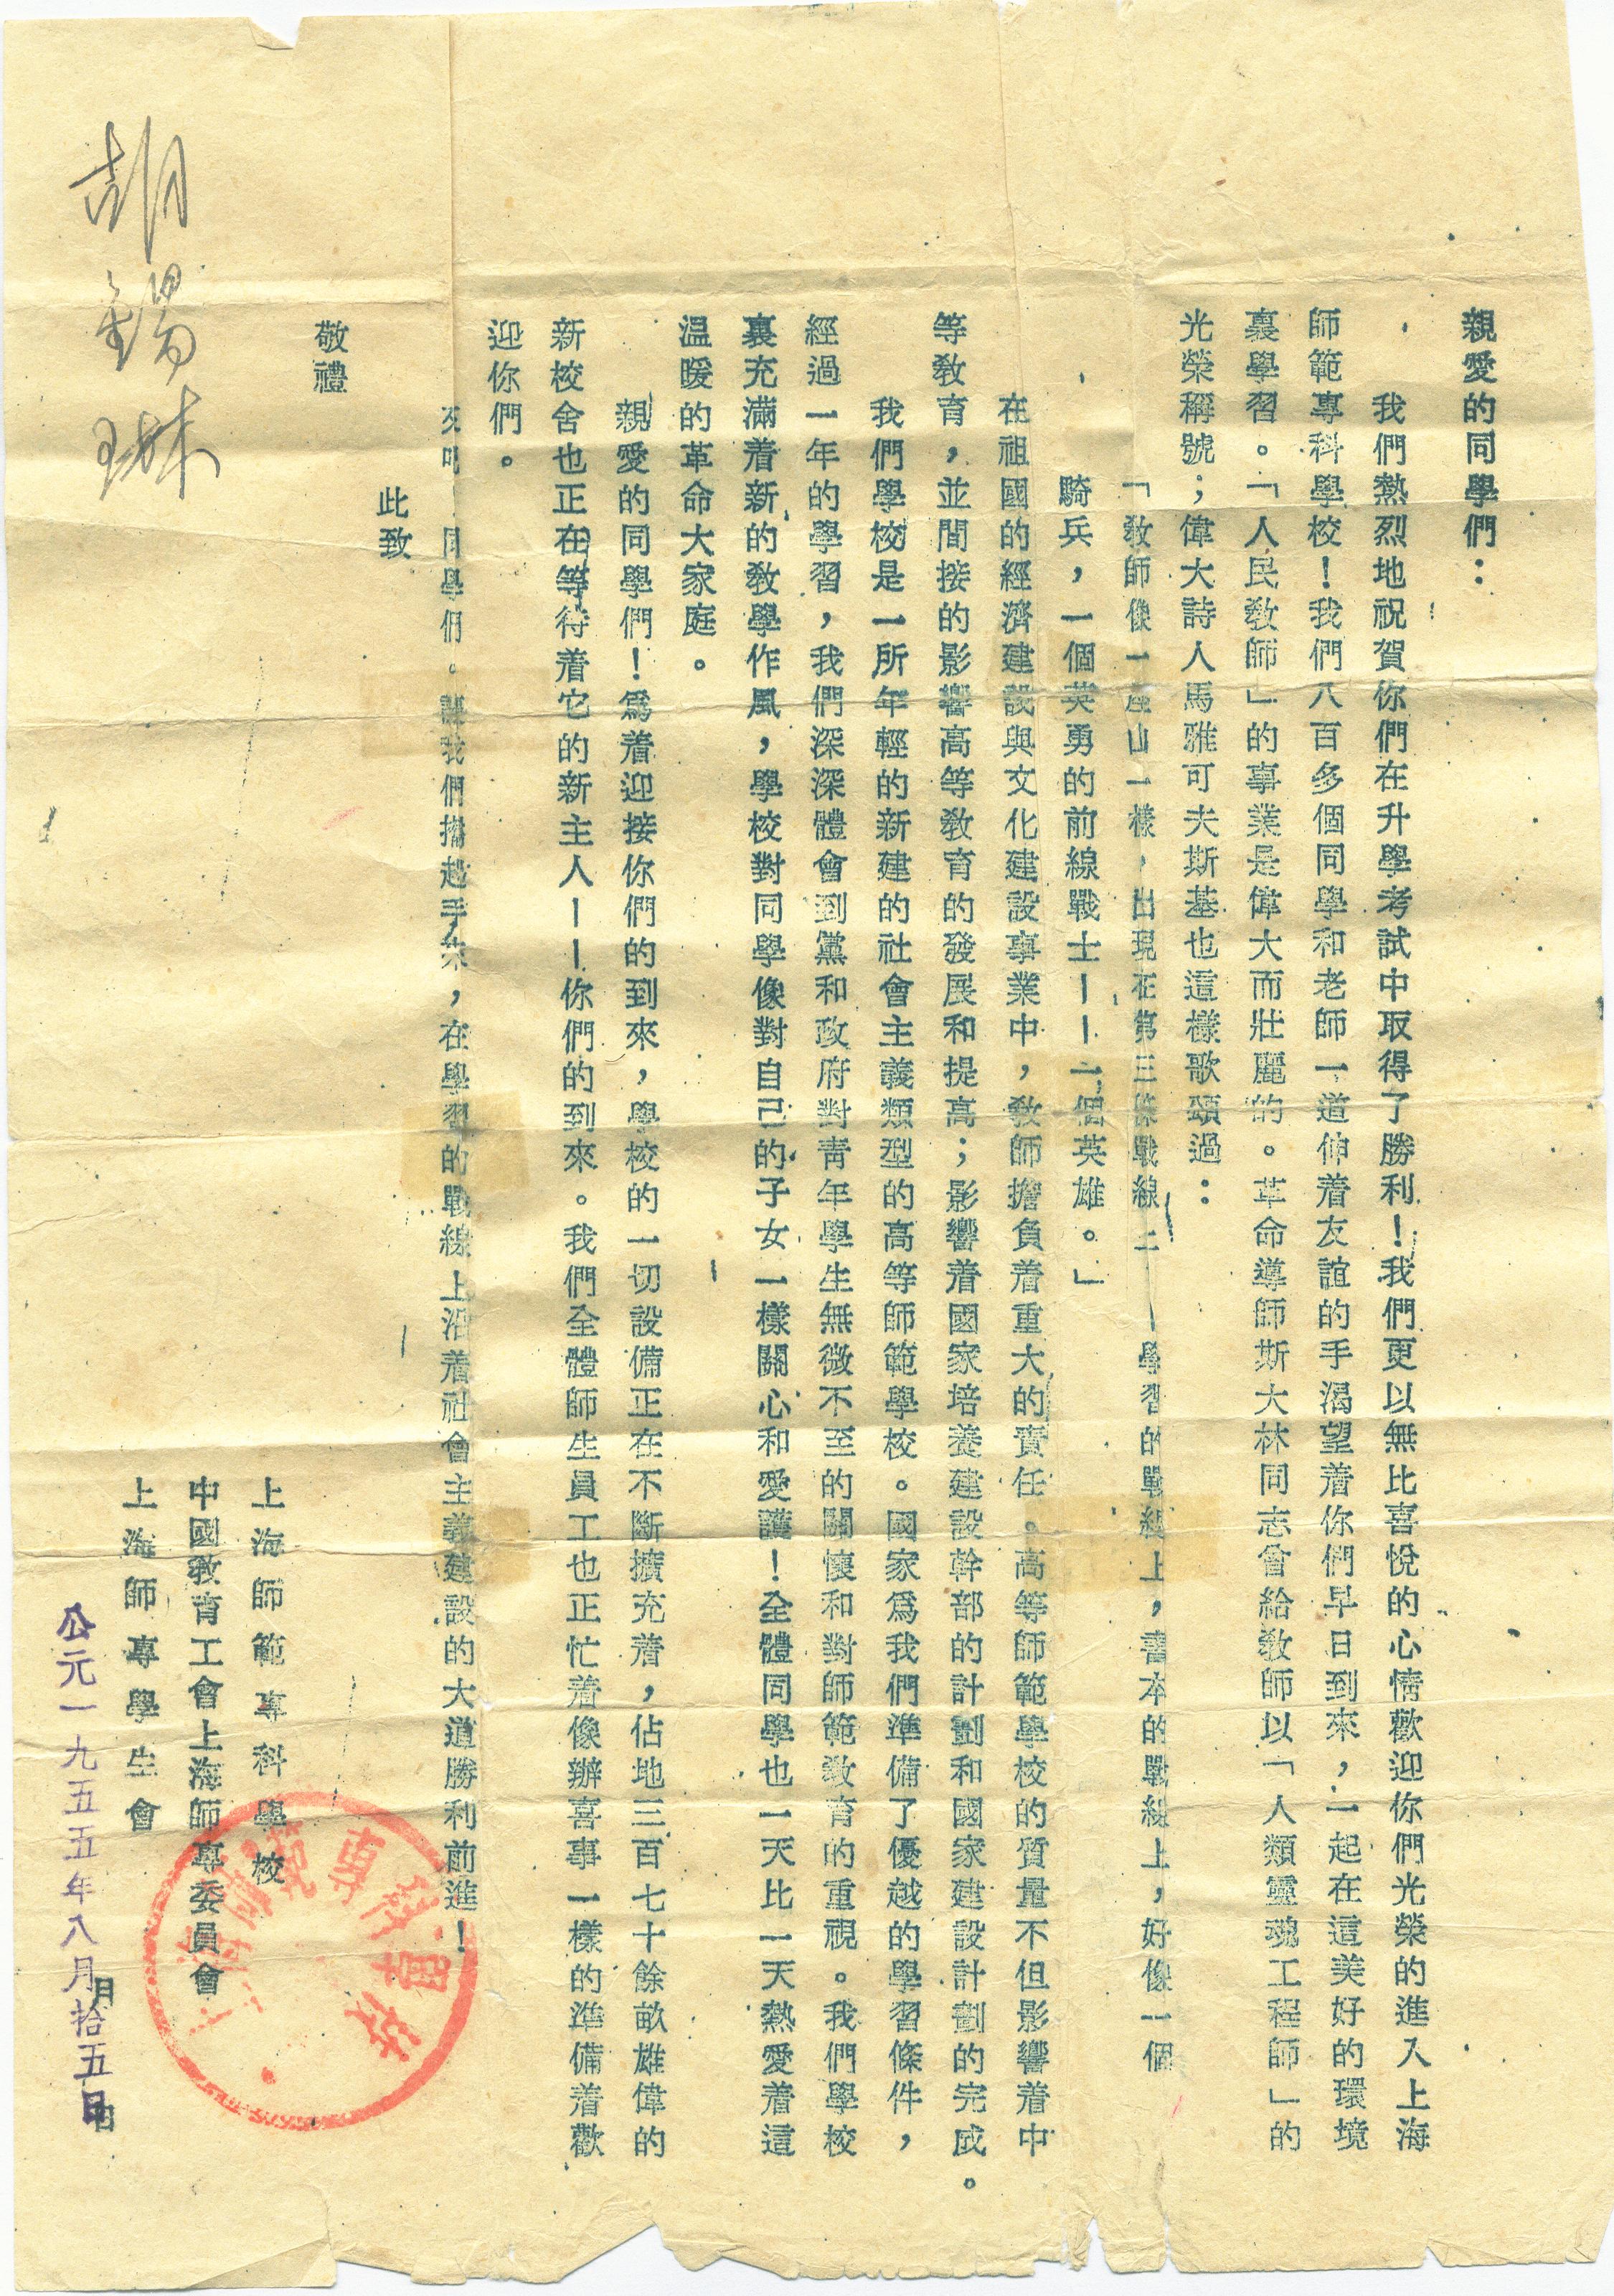 親愛的同學們：
我們熱烈地祝賀你們在升學考試中取得了勝利！我們更以無比喜悅的心情歡迎你們光榮的進入上海
師範專科學校！我們八百多個同學和老師一道伸着友誼的手渴望着你們早日到來，一起在這美好的環境
裏學習。「人民教師」的事業是偉大而壯麗的。革命導師斯大林同志會給教師以「人類靈魂工程師」的
光榮稱號；偉大詩人馬雅可夫斯基也這樣歌頌過：
「教師像一座山一樣，出現在第三條戰線——學習的戰線上，書本的戰線上，好像一個
騎兵，一個英勇的前線戰士——一個英雄。」
在祖國的經濟建設與文化建設事業中，教師擔負着重大的責任。高等師範學校的質量不但影響着中
等教育，並間接的影響高等教育的發展和提高；影響着國家培養建設幹部的計劃和國家建設計劃的完成。
我們學校是一所年輕的新建的社會主義類型的高等師範學校。國家爲我們準備了優越的學習條件，
經過一年的學習，我們深深體會到黨和政府對青年學生無微不至的關懷和對師範教育的重視。我們學校
裏充滿着新的教學作風，學校對同學像對自己的子女一樣關心和愛護！全體同學也一天比一天熱愛着這
溫暖的革命大家庭。
親愛的同學們！爲着迎接你們的到來，學校的一切設備正在不斷擴充着，佔地三百七十餘畝雄偉的
新校舍也正在等待着它的新主人——你們的到來。我們全體師生員工也正忙着像辦喜事一樣的準備着歡
迎你們。
來吧！同學們。讓我們攜起手來，在學習的戰線上沿着社會主義建設的大道勝利前進！
此致
敬禮
上海師範專科學校
中國教育工會上海師專委員會
上海師專學生會
公元一九五五年八月拾五日
上海師範專科學校
胡錫琳